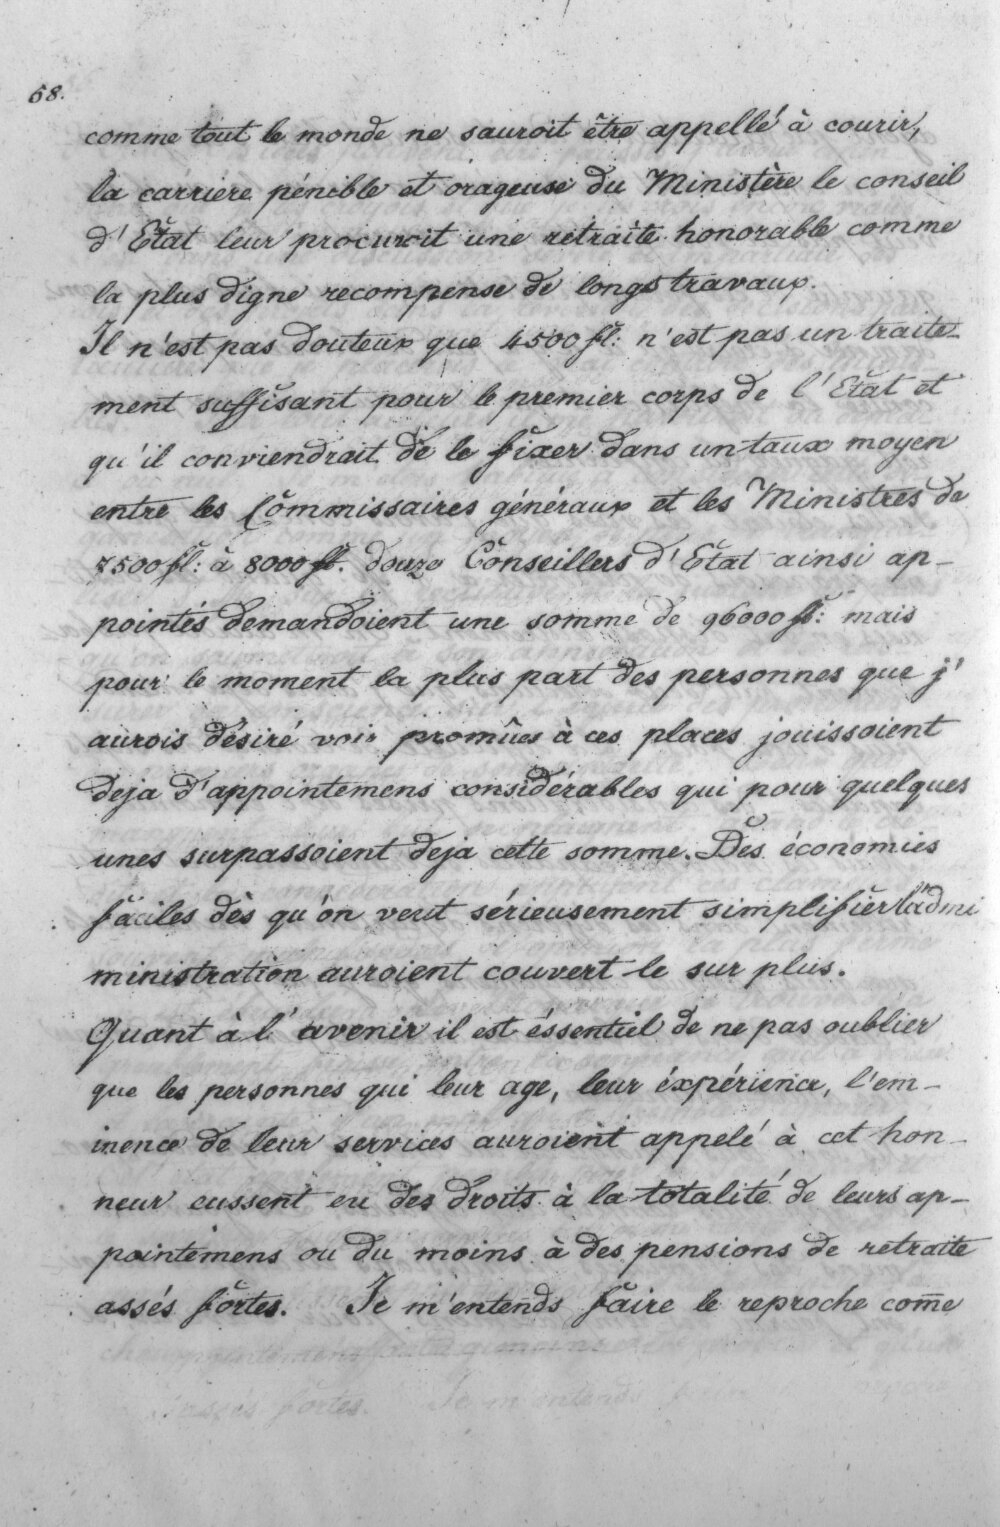 68.
comme tout le monde ne sauroit être appellé à courir,
la carriere pénible et orageuse du Ministère le conseil
d'État leur procuroit une retraite honorable comme
la plus digne recompense de longs travaux.
Il n'est pas douteux que 4500 fl: n'est pas un traite-
ment suffisant pour le premier corps de l'Etat et
qu'il conviendrait de le fixer dans un taux moyen
entre les Commissaires généraux et les Ministres de
7500 fl: à 8000 fl. douze Conseillers d'Etat ainsi ap-
pointés demandoient une somme de 96000 fl: mais
pour le moment la plus part des personnes que j'
aurois désiré voir promûes à ces places jouissoient
deja d'appointemens considérables qui pour quelques
unes surpassoient deja cette somme. Des économies
faciles dès qu'on veut sérieusement simplifier l'admi
ministration auroient couvert le sur plus.
Quant à l'avenir il est éssentiel de ne pas oublier
que les personnes qui leur age, leur éxpérience, l'em-
inence de leur services auroient appelé à cet hon-
neur eussent eu des droits à la totalité de leurs ap-
pointemens ou du moins à des pensions de retraite
assés fortes. Je m'entends faire le reproche com̄e